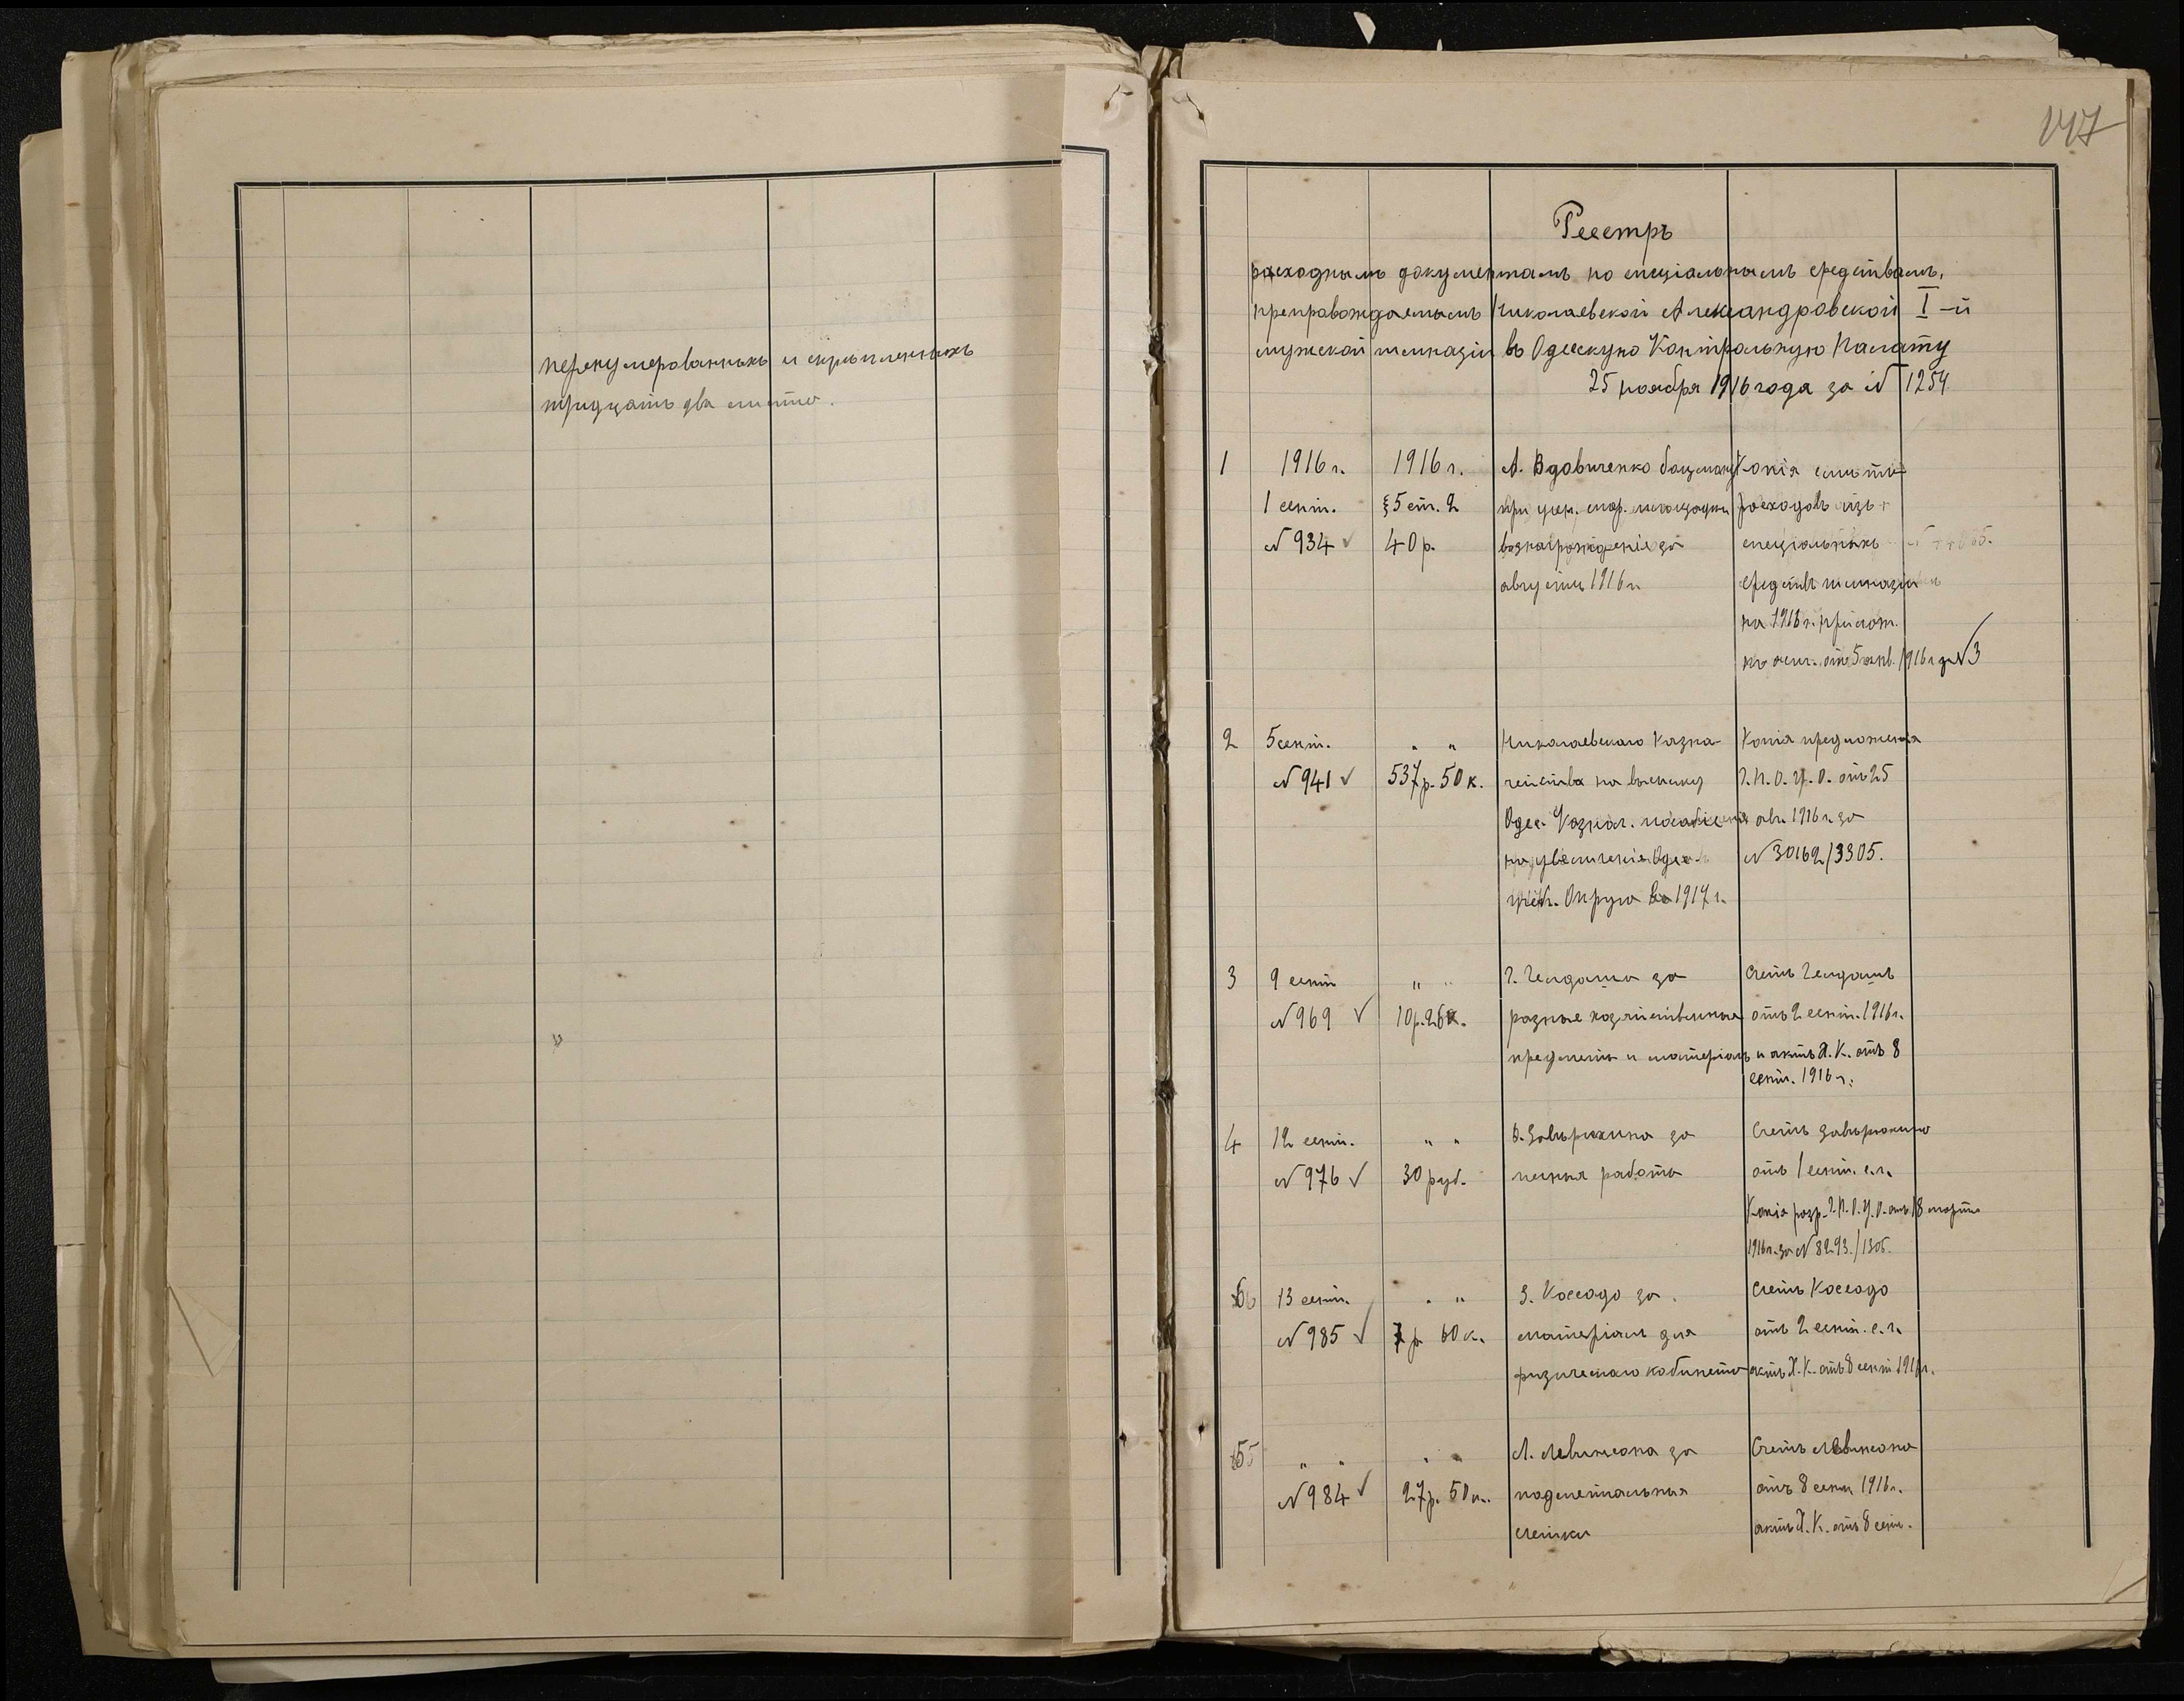 перенумерованныхъ и скрѣпленныхъ
тридцать два листа.
147
Реестръ
расходнымъ документамъ по спеціальнымъ средствамъ,
препровождаемымъ Николаевской Александровской I-й
мужской гимназіи въ Одесскую Контрольную Палату
25 ноября 1916 года за № 1254
1 1916 г. 1916 г. А. Вдовиченко боцману Копія смѣты
1 сент. §5 ст. 2 при учен. мор. площадки расходовъ изъ
№ 934 40 р. вознагражденіе за спеціальныхъ
августъ 1916 г. средствъ гимназіи
на 1916 г. прилож.
къ асиг. отъ 5 янв. 1916 г. за № 3
2 5 сент. " " Николаевскаго Казна- Копія предложенія
№ 941 537 р. 50 к. чейства на высылку Г. П. О. У. О. отъ 25
Одес. Казнач. пособія авг. 1916 г. за
на увеличеніе Одес. № 30162/3305.
учебн. Округа 1917 г.
3 9 сент " " Г. Гендлина за Счетъ
№ 969 10 р. 26 к. разные хозяйственные отъ 2 сент. 1916 г.
предметы и матеріалъ и актъ Х. К. отъ 8
сент. 1916 г.
4 12 сент. " " за Счетъ
№ 976 30 руб. печныя работы отъ 1 сент. с. г.
Копія разр. Г. П. О. У. О. отъ 18 марта
1916 г. за № 8293/1305.
6 13 сент. " " З. Коссадо за Счетъ Коссадо
№ 985 7 р. 60 к. матеріалъ для отъ 2 сент. с. г.
физическаго кабинета актъ Х. К. отъ 8 сент 1916 г.
5 " " " " Л. Левинсона за Счетъ Левинсона
№ 984 27 р. 50 к. подметальныя отъ 8 сент 1916 г.
щетки актъ Х. К. отъ 8 сент.